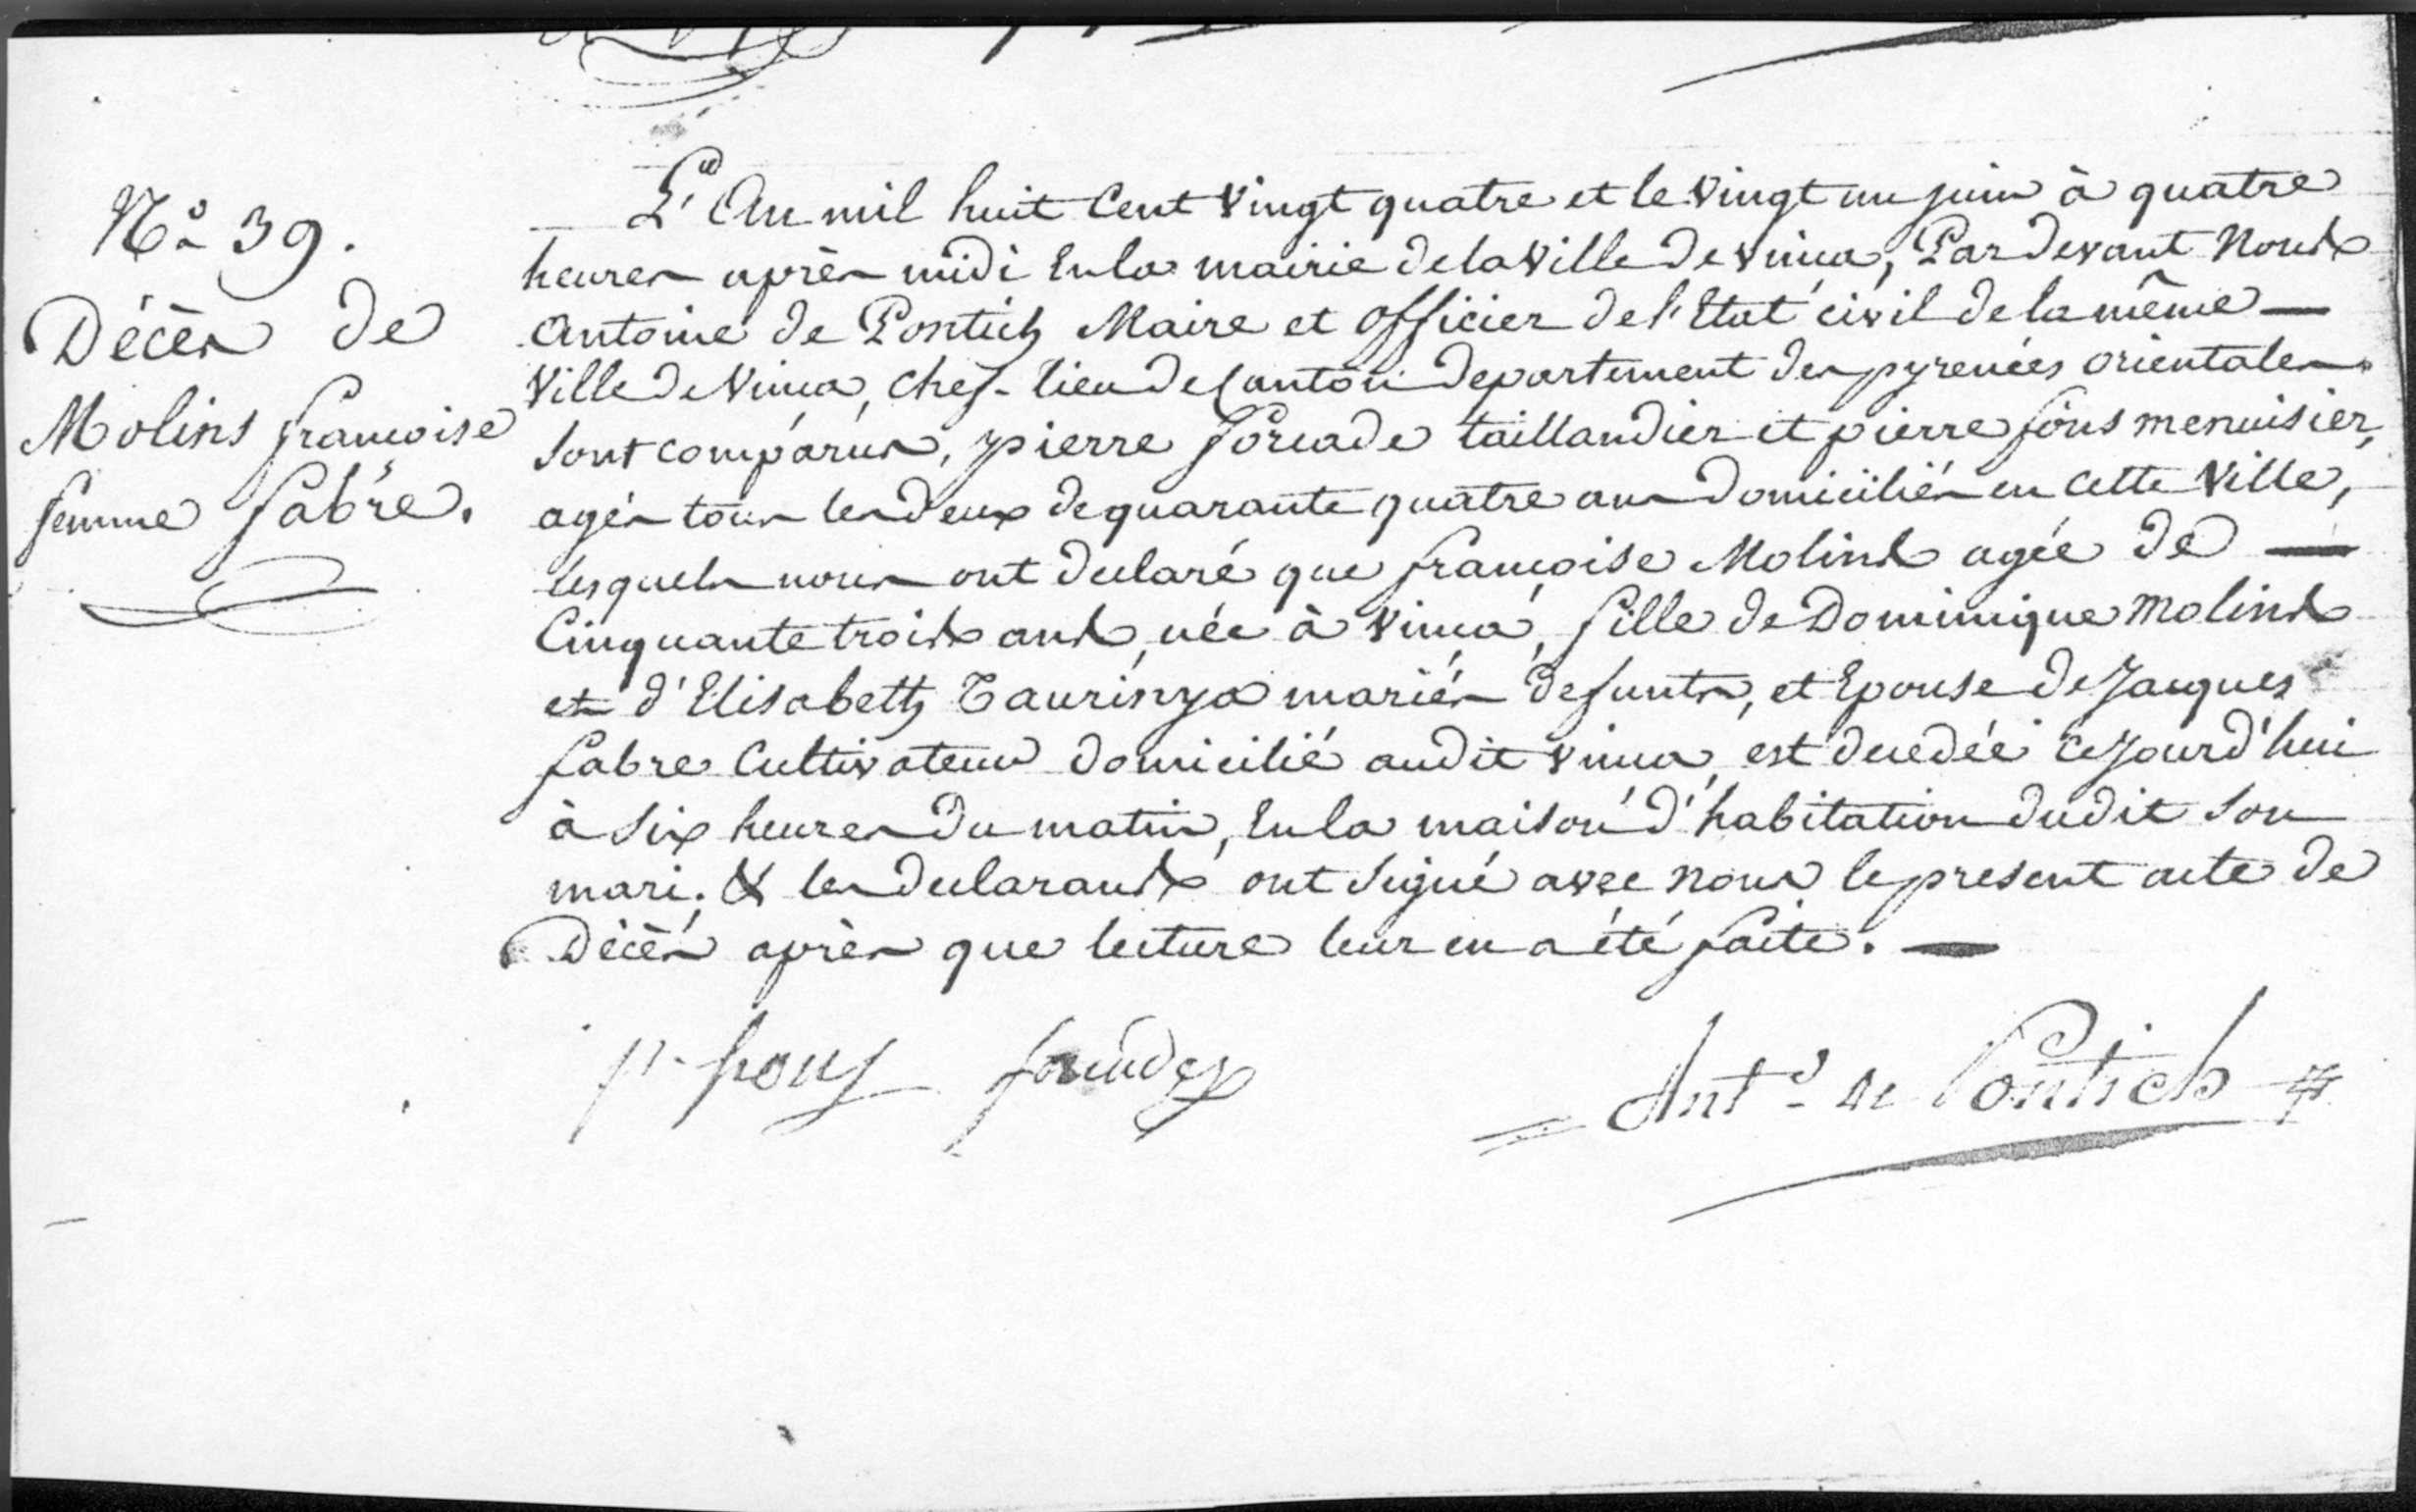 N.° 39.
Décès de
Molins françoise
femme fabre.
L'An mil huit Cent Vingt quatre et le Vingt un juin à quatre
heures après midi En la mairie de la Ville de Vinça, Par devant Nous
Antoine de Pontich Maire et Officier de l'Etat civil de la même —
Ville de Vinça, chef-lieu de Canton departement des pyrenées orientales.
Sont comparus, pierre forcade taillandier et pierre fons menuisier,
agés tous les deux de quarante quatre ans domiciliés en cette Ville,
lesquels nous ont declaré que françoise Molins agée de —
Cinquante trois ans, née à Vinça, fille de Dominique Molins
et d'Elisabeth Taurinya mariés defunts, et Epouse de Jacques
fabre Cultivateur domicilié audit Vinça, est decedée cejourd'hui
à Six heures du matin, En la maison d'habitation dudit Son
mari. & les declarants ont Signé avec nous le present acte de
Décès après que lecture leur en a été faite. —
p. fons
Ant.e de Pontich